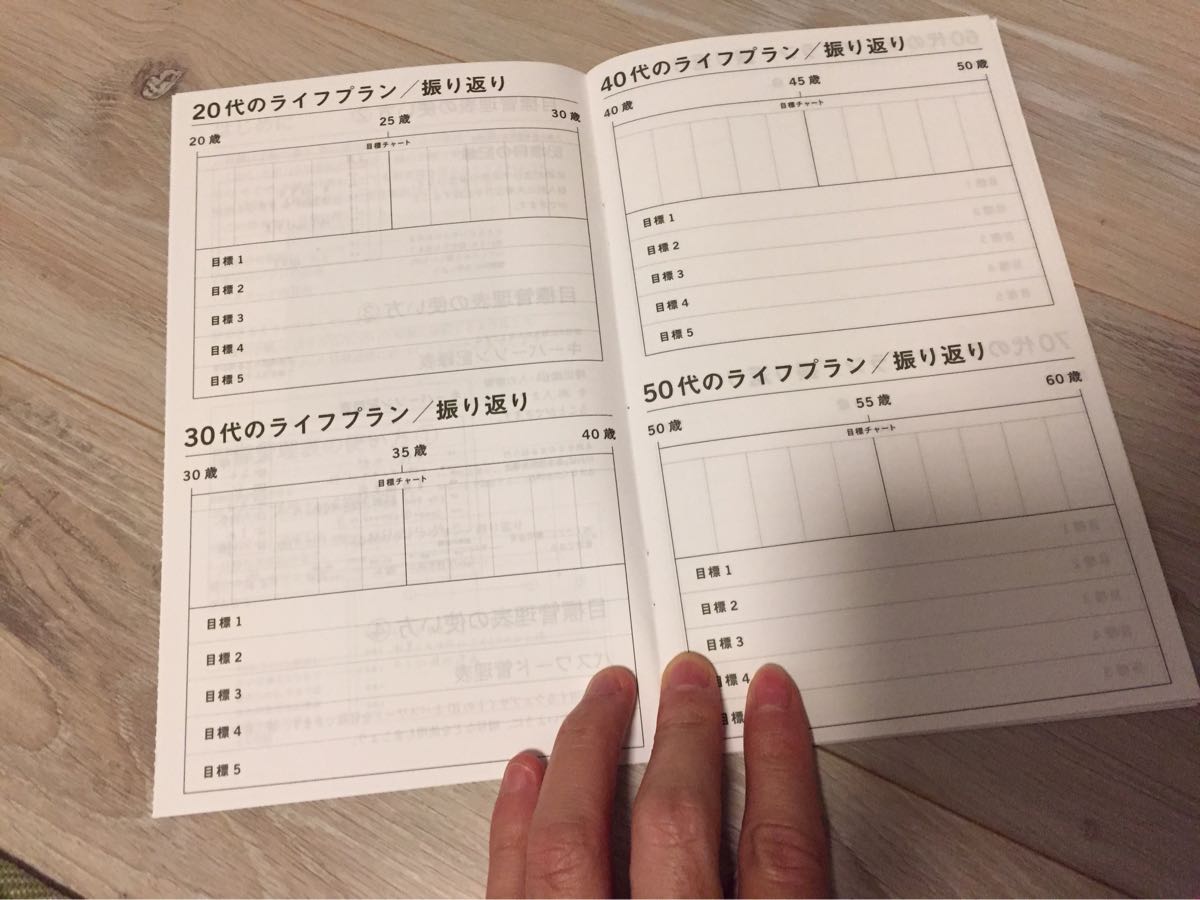 20代のライフプラン／振り返り
20歳 25歳 30歳
目標チャート
目標1
目標2
目標3
目標4
目標5
30代のライフプラン／振り返り
30歳 35歳 40歳
目標チャート
目標1
目標2
目標3
目標4
目標5
40代のライフプラン／振り返り
40歳 45歳 50歳
目標チャート
目標1
目標2
目標3
目標4
目標5
50代のライフプラン／振り返り
50歳 55歳 60歳
目標チャート
目標1
目標2
目標3
目標4
目標